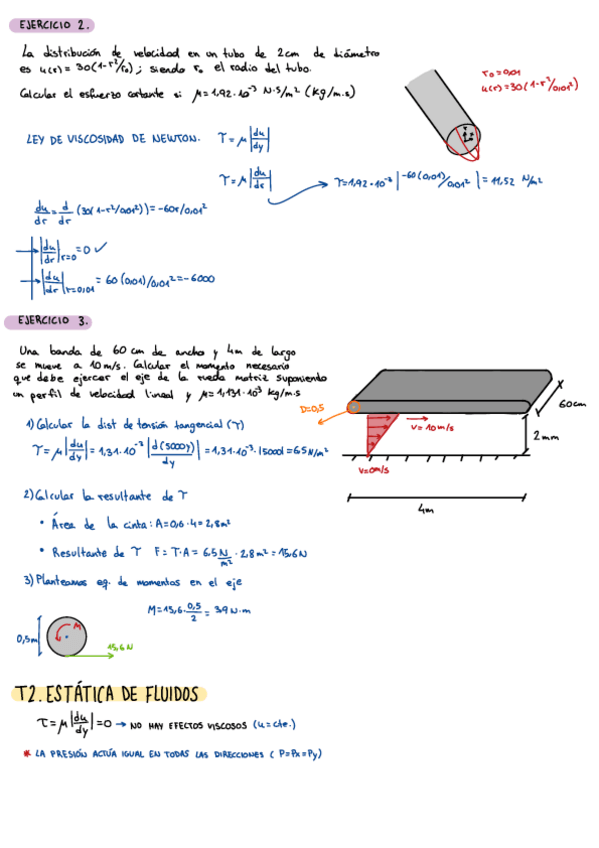 EJERCICIO 2.
La distribución de velocidad en un tubo de 2cm de diámetro
es u(r) = 30(1-r²/r₀) ; siendo r₀ el radio del tubo.
Calcular el esfuerzo cortante si μ=1,92·10⁻³ N·S/m² (kg/m.s)
r₀=0,01
u(r)=30(1-r²/0,01²)
LEY DE VISCOSIDAD DE NEWTON. τ=μ|du/dy|
τ=μ|du/dr| → τ=1,92·10⁻³ |-60(0,01)/0,01²| = 11,52 N/m²
du/dr = d/dr (30(1-r²/0,01²)) = -60r/0,01²
→ |du/dr|r=0 = 0 ✓
→ |du/dr|r=0,01 = 60(0,01)/0,01² = -6000
EJERCICIO 3.
Una banda de 60cm de ancho y 4m de largo
se mueve a 10m/s. Calcular el momento necesario
que debe ejercer el eje de la rueda motriz suponiendo
un perfil de velocidad lineal y μ=1,131·10⁻³ kg/m.s
D=0,5
60cm
V=10m/s
2mm
V=0m/s
4m
1) Calcular la dist de tensión tangencial (τ)
τ=μ|du/dy| = 1,31·10⁻³ |d(5000y)/dy| = 1,31·10⁻³·|5000| = 6.5N/m²
2) Calcular la resultante de τ
• Área de la cinta: A=0,6·4=2,8m²
• Resultante de τ F=τ·A= 6.5 N/m² · 2,8m² = 15,6N
3) Planteamos eq. de momentos en el eje
M=15,6·0,5/2 = 3.9 N·m
0,5m
M
15,6N
T2. ESTÁTICA DE FLUIDOS
τ=μ|du/dy|=0 → NO HAY EFECTOS VISCOSOS (u=cte.)
* LA PRESIÓN ACTÚA IGUAL EN TODAS LAS DIRECCIONES ( P=Px=Py)